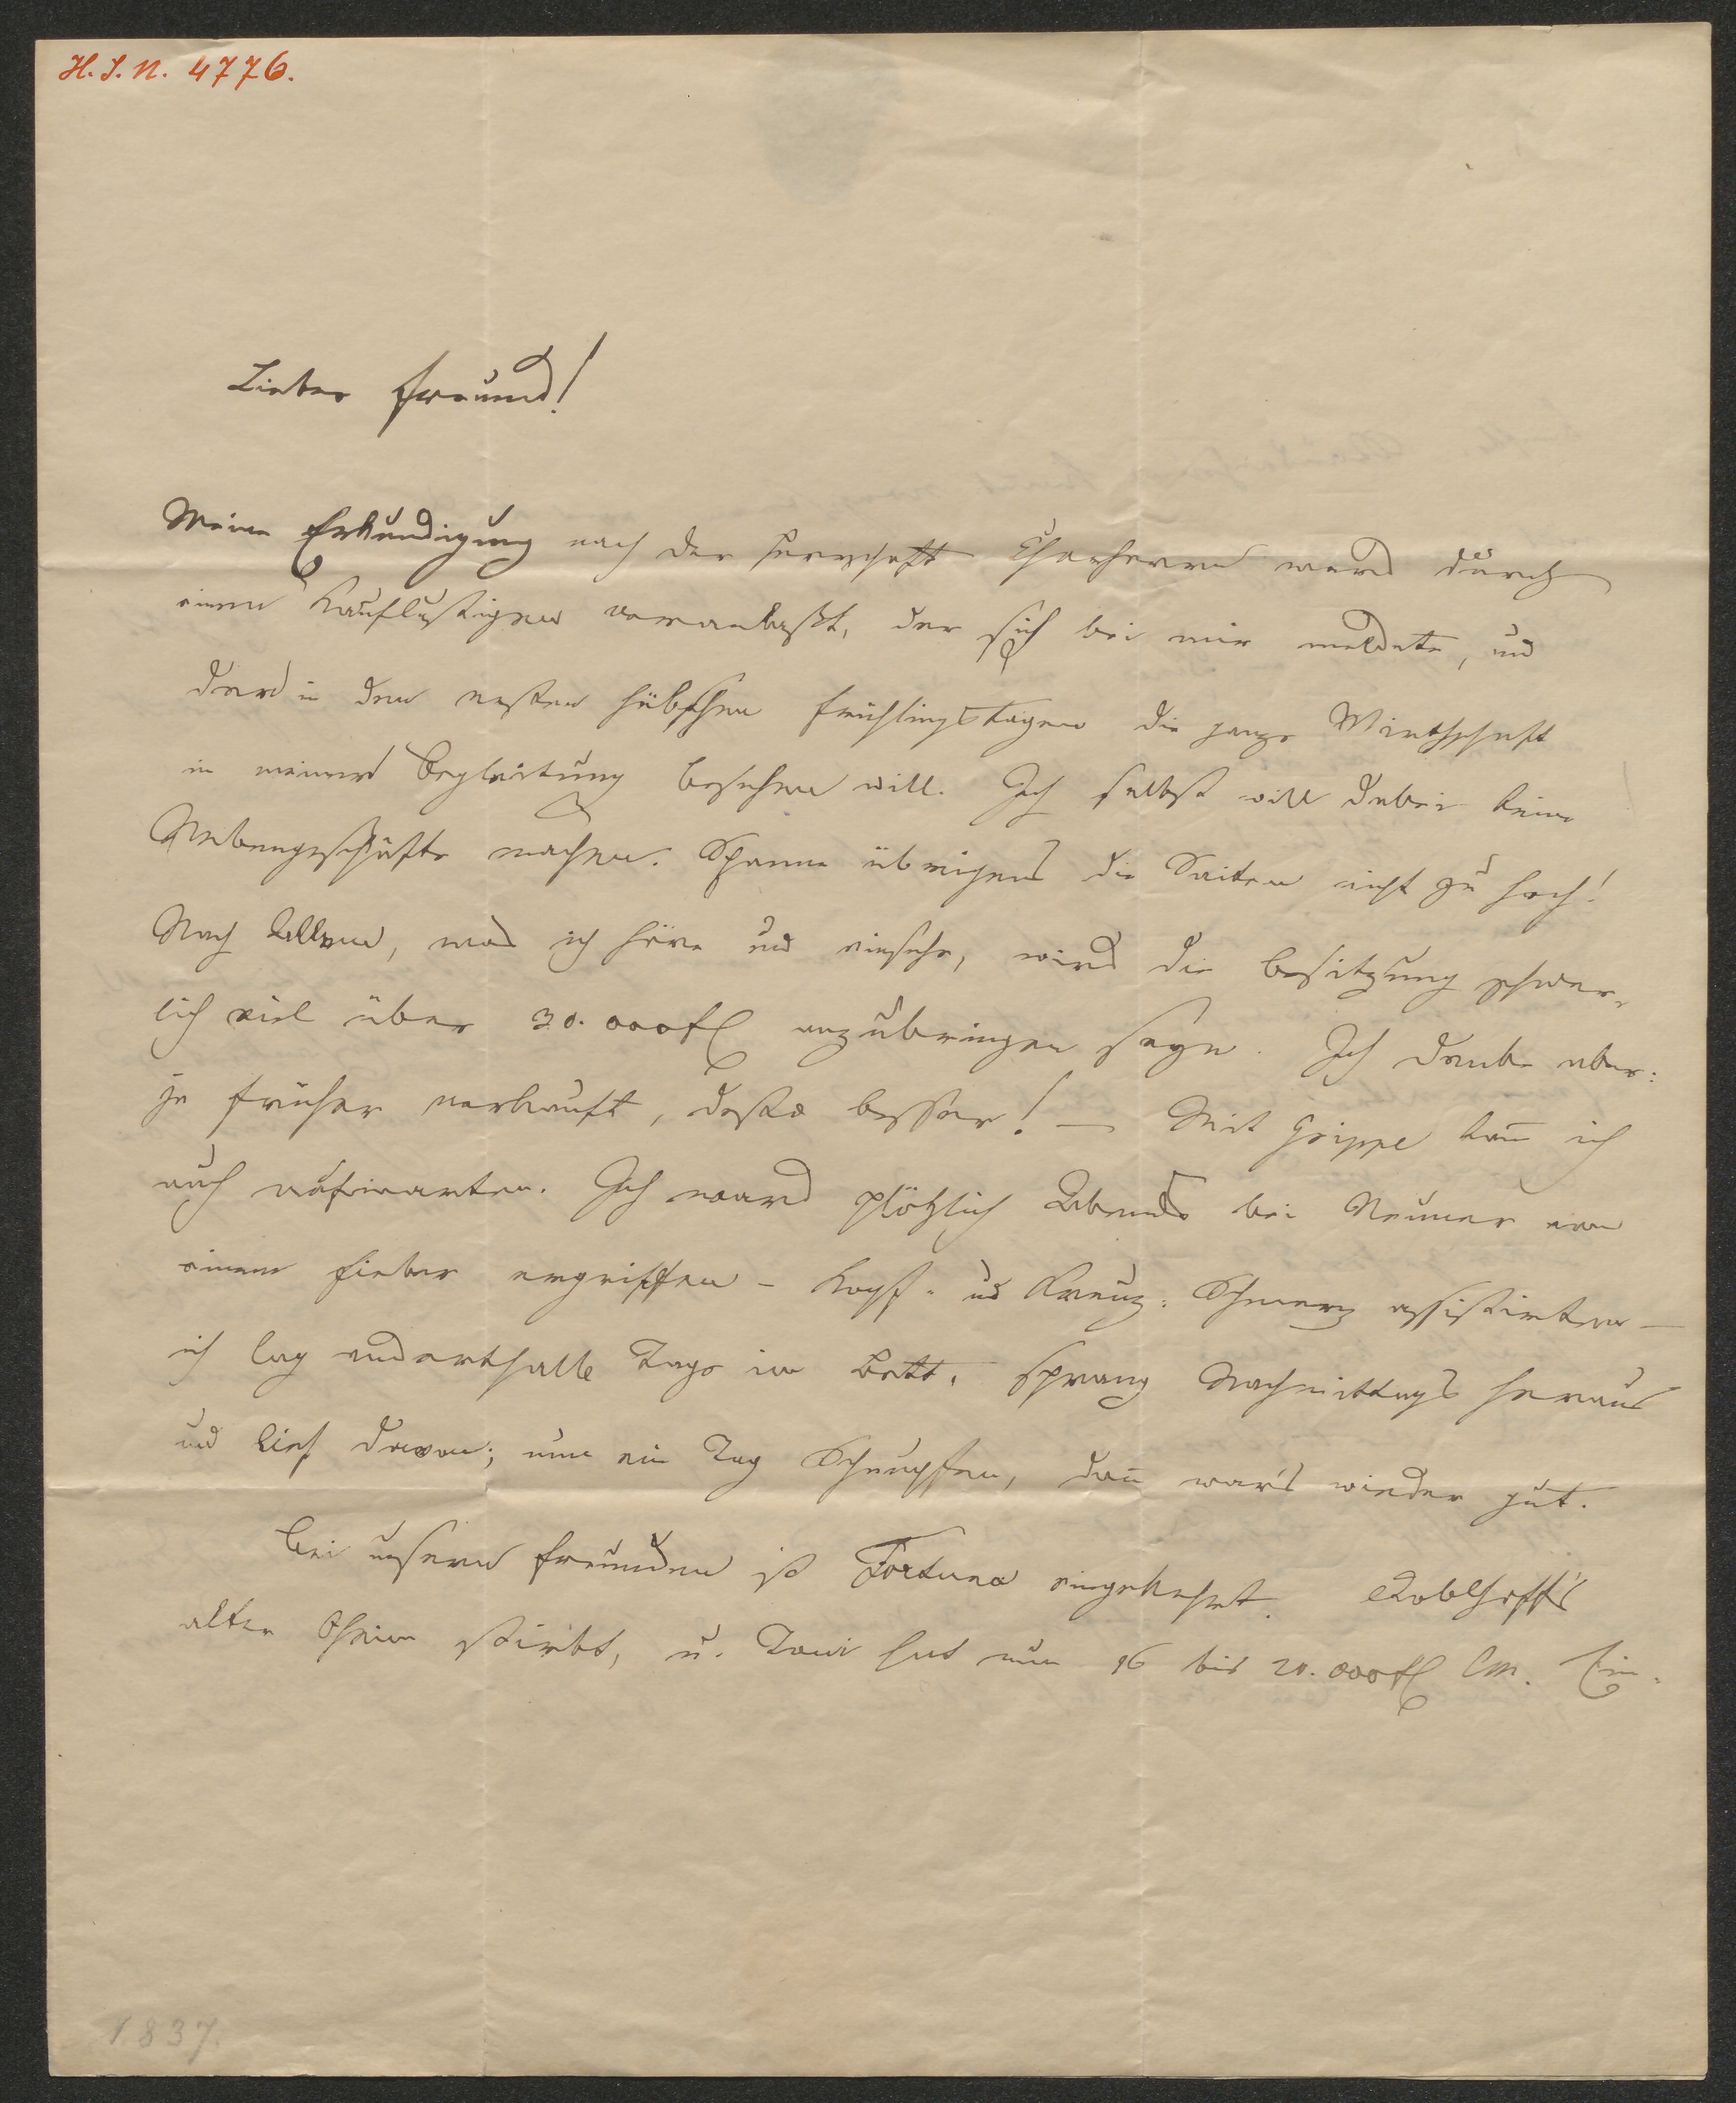 H. I. N. 4776.
Lieber Freund!
Meine Erkundigung nach der Herrschaft Thorherrn ward durch
einen Kauflustigen veranlaßt, der sich bei mir meldete, und
der in den ersten hübschen Frühlingstagen die ganze Wirthschaft
in meiner Begleitung besehen will. Ich selbst will dabei keine
Nebengeschäfte machen. Spanne übrigens die Saiten nicht zu hoch!
Nach Allem, was ich höre und einsehe, wird die Besitzung schwer-
lich viel über 30.000 fl anzubringen seyn. Ich denke aber:
je früher verkauft, desto besser! – Mit Grippe kan̅ ich
auch aufwarten. Ich ward plötzlich Abends bei Neuner von
einem Fieber ergriffen – Kopf- und Kreuz-Schmerz assistirten –
ich lag anderthalb Tage im Bett, sprang Nachmittags heraus
und lief davon; nun ein Tag Schnupfen, dan̅ war's wieder gut.
Bei unsern Freunden ist Fortuna eingekehrt. Doblhoff's
alter Oheim stirbt, u. Toni hat nun 16 bis 20.000 fl CM. Ein-
1837.